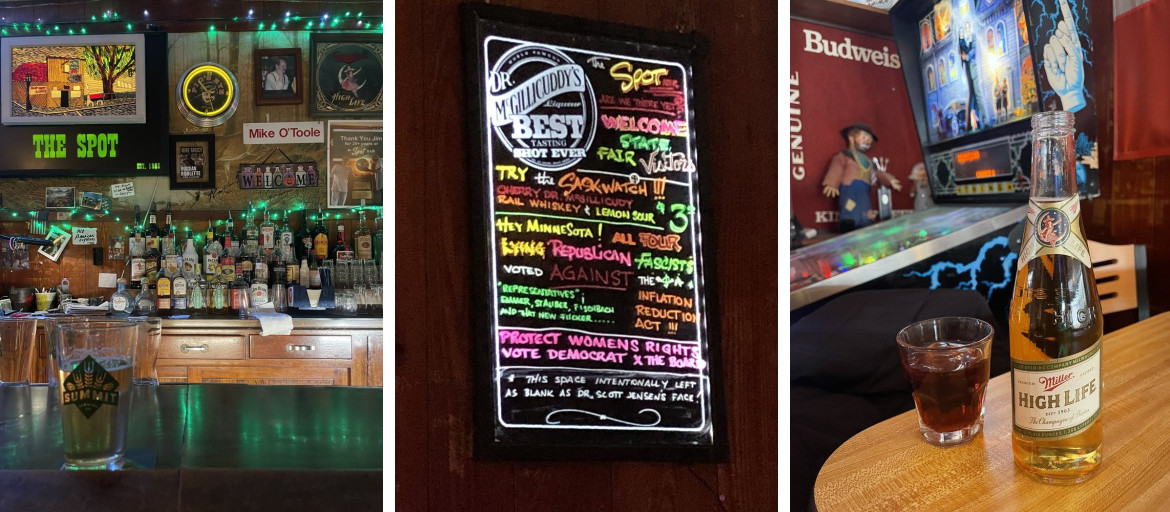 THE SPOT
EST. 1885
HIGH LIFE
Mike O'Toole
Thank You Jim
WELCOME
SUMMIT
WORLD FAMOUS
DR.
McGILLICUDDY'S
Liqueur
BEST
TASTING
SHOT EVER
The SPOT BAR
ARE WE THERE YET?
WELCOME
STATE
FAIR VISITORS
TRY the SASKWATCH !!!
CHERRY DR. McGILLICUDY
RAIL WHISKEY & LEMON SOUR $3
HEY MINNESOTA! ALL FOUR
LYING REPUBLICAN FASCISTS
VOTED AGAINST THE
"REPRESENTATIVES";
EMMER, STAUBER, FISCHBACH
AND THAT NEW FUCKER......
INFLATION
REDUCTION
ACT !!!
PROTECT WOMENS RIGHTS
VOTE DEMOCRAT X THE BOARD
* THIS SPACE INTENTIONALLY LEFT
AS BLANK AS DR. SCOTT JENSEN'S FACE!
Budweis
GENUINE
KIN
Miller
HIGH LIFE
EST. 1903
The Champagne of Beers